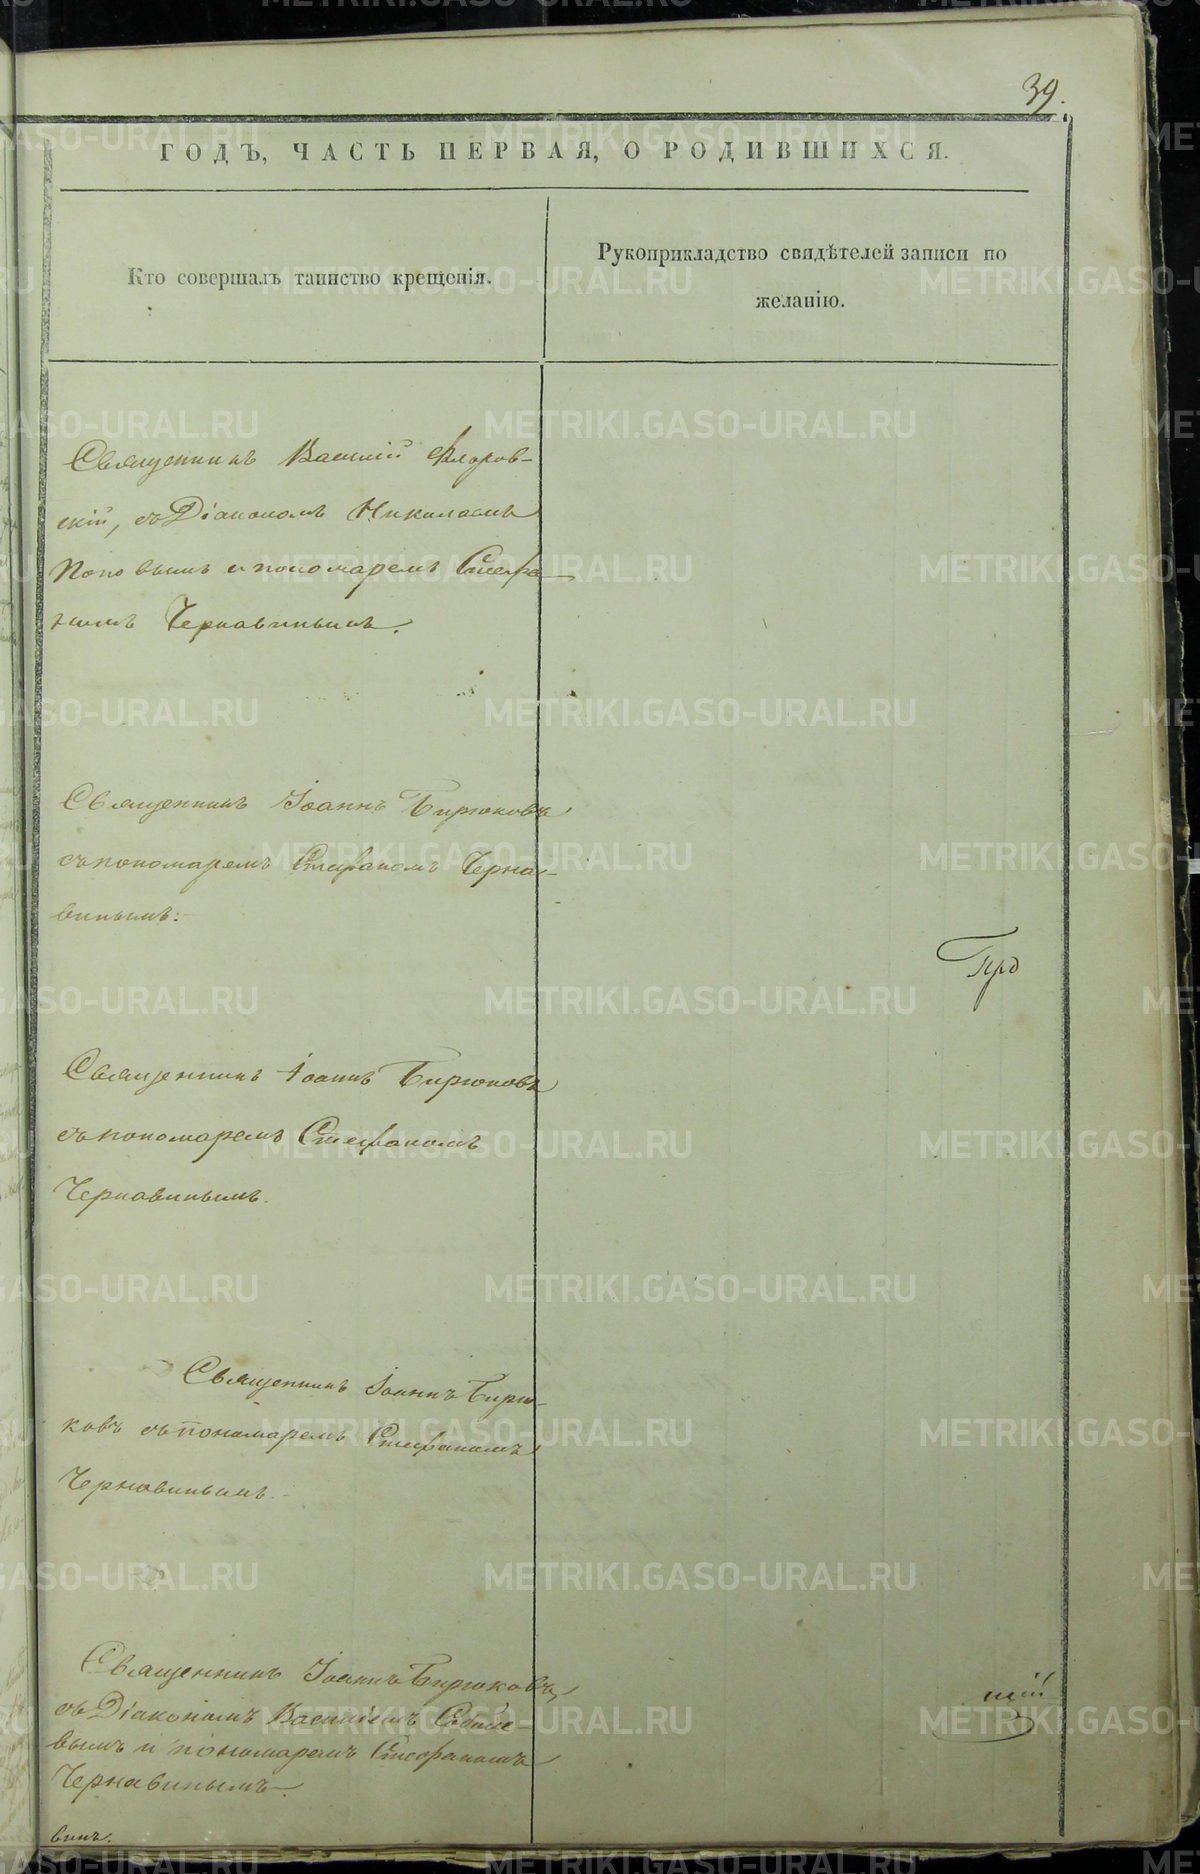 39.
ГОДЪ, ЧАСТЬ ПЕРВАЯ, О РОДИВШИХСЯ.
Кто совершалъ таинство крещенія.
Рукоприкладство свидѣтелей записи по
желанію.
Священникъ Василій Флоров-
скій, съ Діакономъ Николаемъ
Поповымъ и пономаремъ Стефа-
номъ Чернавинымъ.
Священникъ Іоаннъ Бирюковъ
съ пономаремъ Стефаномъ Черна-
винымъ:-
Про
Священникъ Іоаннъ Бирюковъ
съ пономаремъ Стефаномъ
Чернавинымъ.
Священникъ Іоаннъ Бирю-
ковъ съ пономаремъ Стефаномъ
Чернавинымъ.-
Священникъ Іоаннъ Бирюковъ,
съ Діакономъ Василіемъ
вымъ и пономаремъ Стефаномъ
Чернавинымъ.
винъ.
METRIKI.GASO-URAL.RU